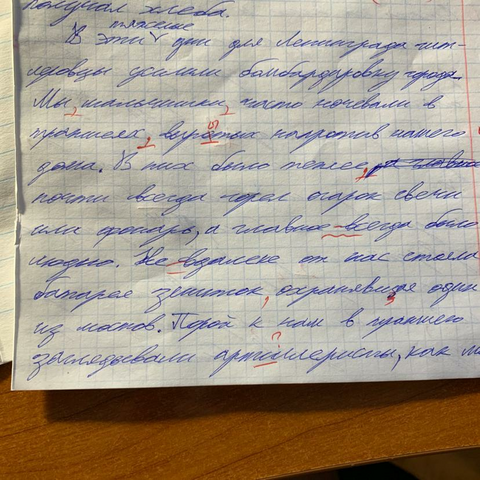 получал хлеба.
тяжёлые
В эти дни для Ленинграда гит-
леровцы усилили бомбардировку города.
Мы, мальчишки, часто ночевали в
траншеях, вырытых напротив нашего
дома. В них было теплее,
почти всегда горел огарок свечи
или фонарь, а главное - всегда было
людно. Не вдалеке от нас стояла
батарея зениток, охранявшая один
из мостов. Порой к нам в траншею
заглядывали артиллеристы, как